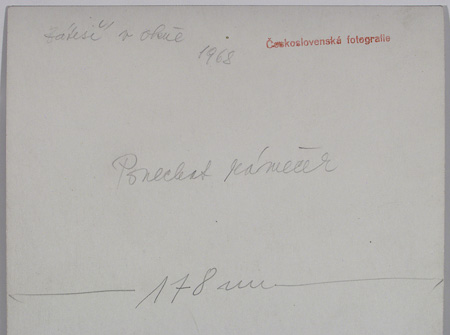 Zátiší v okně
1968
Československá fotografie
Ponechat rámeček
178 mm